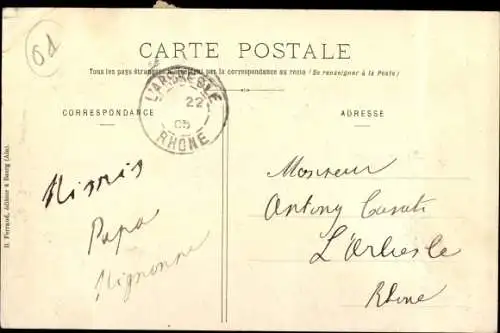 Od
CARTE POSTALE
Tous les pays étrangers n'acceptent pas la correspondance au recto (Se renseigner à la Poste)
L'ARBRESLE
22
05
RHÔNE
CORRESPONDANCE
ADRESSE
Papa
Mignonne
Monsieur
Antony
L'Arbresle
Rhône
B. Ferrand, éditeur à Bourg (Ain).